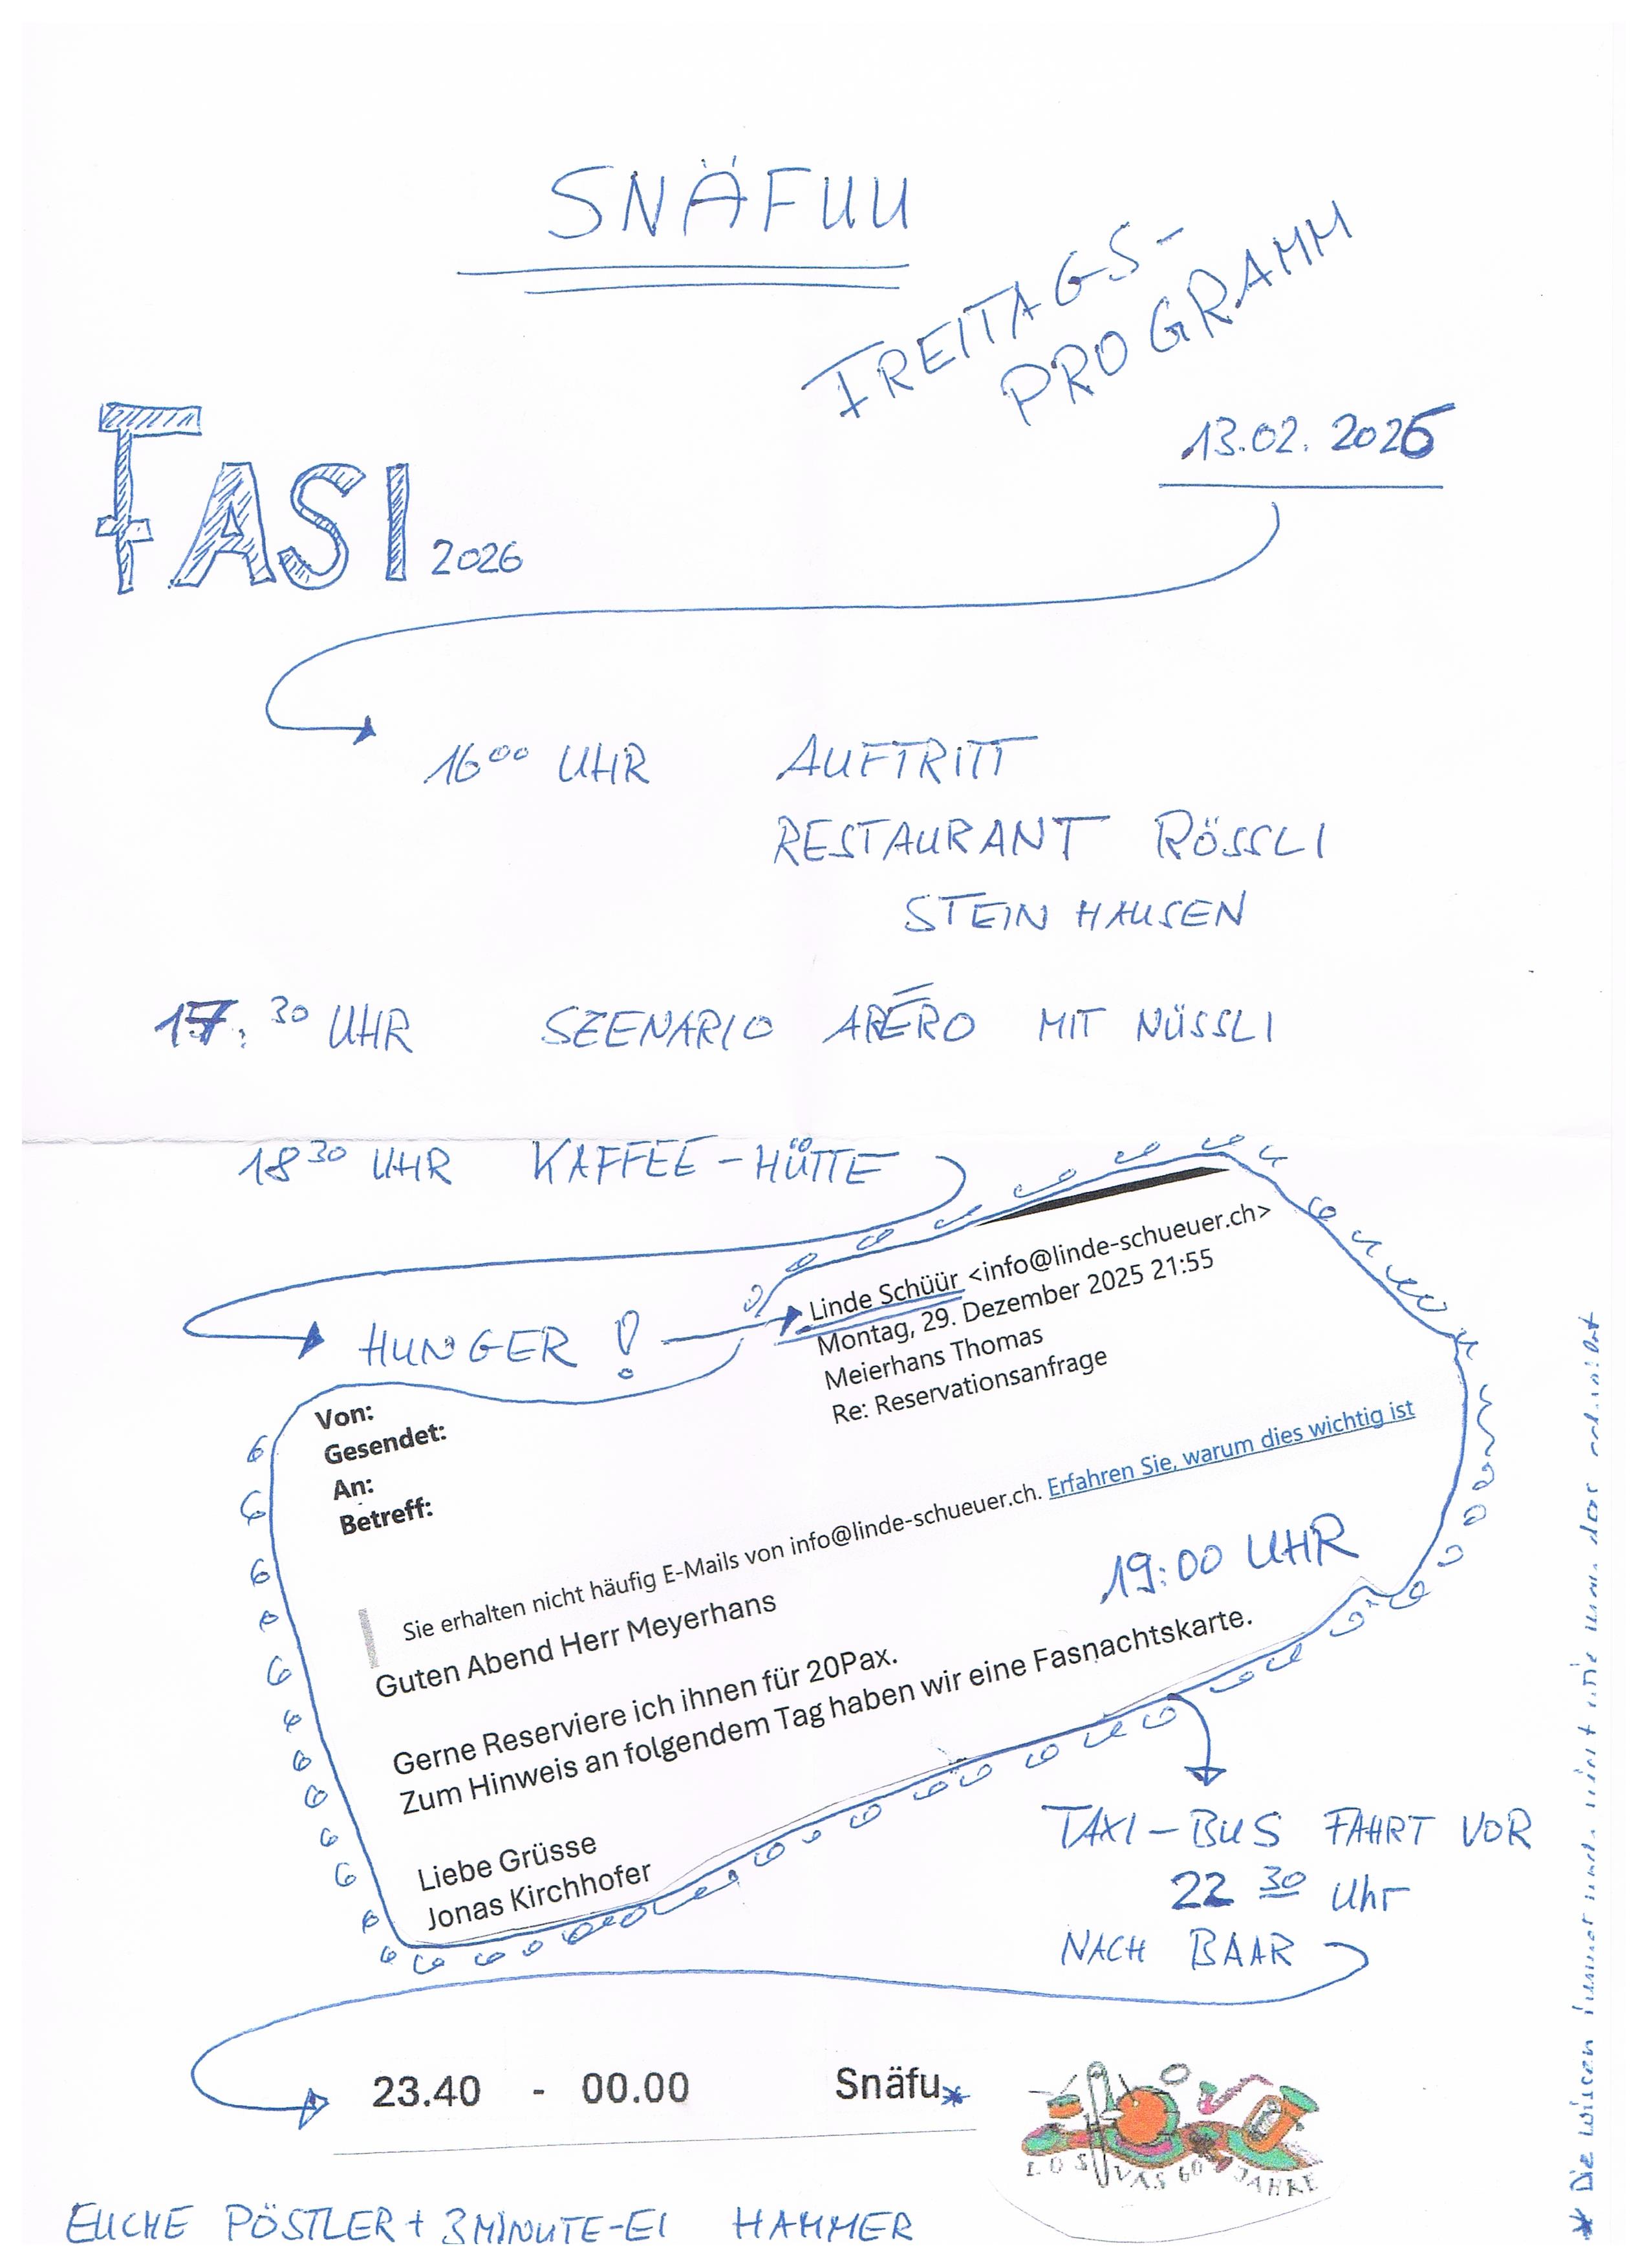 SNÄFUU
FREITAGS-
PROGRAMM
13.02.2026
FASI 2026
16⁰⁰ UHR AUFTRITT
RESTAURANT RÖSSLI
STEINHAUSEN
17:³⁰ UHR SZENARIO APÉRO MIT NÜSSLI
18³⁰ UHR KAFFEE-HÜTTE
HUNGER!
Von: Linde Schüür <info@linde-schueuer.ch>
Gesendet: Montag, 29. Dezember 2025 21:55
An: Meierhans Thomas
Betreff: Re: Reservationsanfrage
Sie erhalten nicht häufig E-Mails von info@linde-schueuer.ch. Erfahren Sie, warum dies wichtig ist
Guten Abend Herr Meyerhans
19:00 UHR
Gerne Reserviere ich ihnen für 20Pax.
Zum Hinweis an folgendem Tag haben wir eine Fasnachtskarte.
Liebe Grüsse
Jonas Kirchhofer
TAXI-BUS FAHRT VOR
22 ³⁰ Uhr
NACH BAAR
23.40 - 00.00 Snäfu*
LOS VAS 60 JAHRE
EUCHE PÖSTLER + 3MINUTE-EI HAMMER
* Die wissen immer noch nicht wie man das schreibt